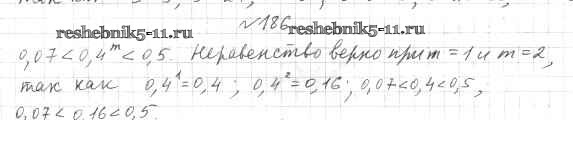 №186
reshebnik5-11.ru reshebnik5-11.ru
0,07 < 0,4^m < 0,5. Неравенство верно при m = 1 и m = 2,
так как 0,4^1 = 0,4 ; 0,4^2 = 0,16 ; 0,07 < 0,4 < 0,5 ,
0,07 < 0,16 < 0,5.